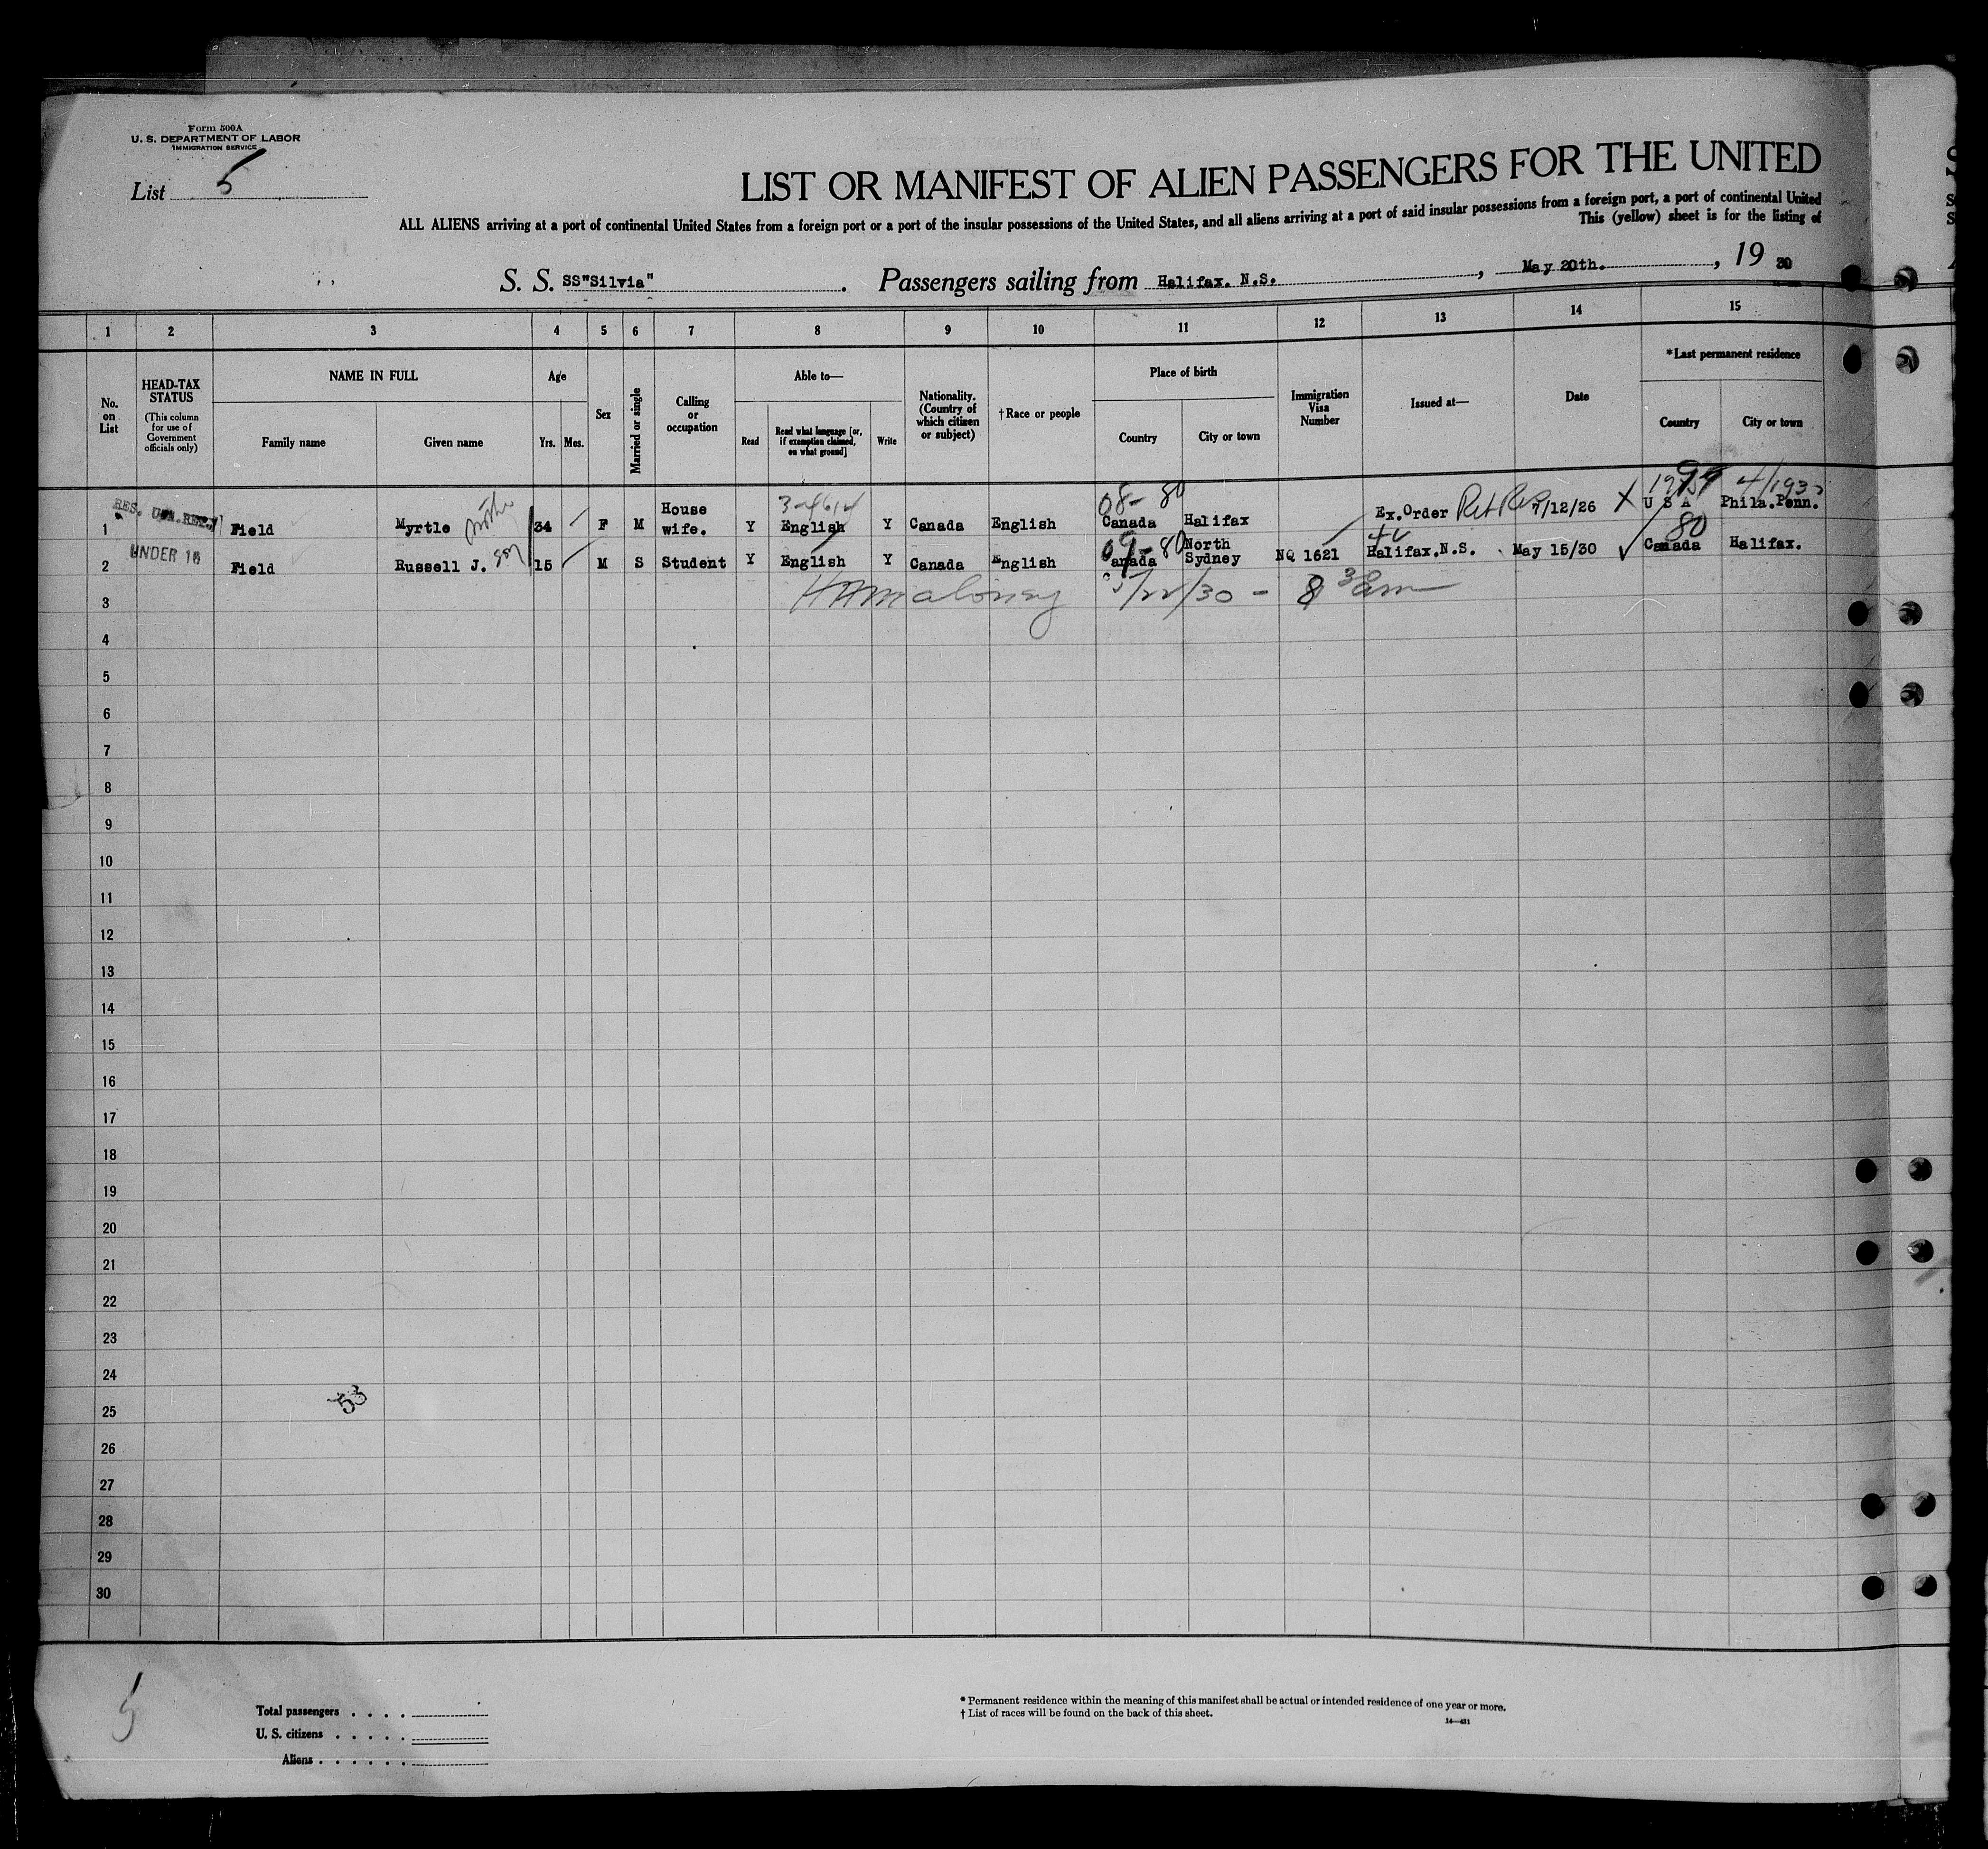 Form 500A
U. S. DEPARTMENT OF LABOR
IMMIGRATION SERVICE
List 5
LIST OR MANIFEST OF ALIEN PASSENGERS FOR THE UNITED
ALL ALIENS arriving at a port of continental United States from a foreign port or a port of the insular possessions of the United States, and all aliens arriving at a port of said insular possessions from a foreign port, a port of continental United
This (yellow) sheet is for the listing of
S. S. SS"Silvia". Passengers sailing from Halifax. N.S., May 20th., 19 30
1 2 3 4 5 6 7 8 9 10 11 12 13 14 15
No. on List
HEAD-TAX STATUS (This column for use of Government officials only)
NAME IN FULL
Family name Given name
Age
Yrs. Mos.
Sex
Married or single
Calling or occupation
Able to—
Read Read what language [or, if exemption claimed, on what ground] Write
Nationality. (Country of which citizen or subject)
†Race or people
Place of birth
Country City or town
Immigration Visa Number
Issued at—
Date
*Last permanent residence
Country City or town
3-4614 08- 80 4/1930
1 Field Myrtle mother 34 F M House wife. Y English Y Canada English Canada Halifax Ex.Order 7/12/26 X U S A Phila.Penn.
80
UNDER 16
09-80
2 Field Russell J. son 15 M S Student Y English Y Canada English Canada North Sydney NQ 1621 Halifax.N.S. May 15/30 ✓ Canada Halifax.
3 Maloney 5/22/30 - 8 30am
4
5
6
7
8
9
10
11
12
13
14
15
16
17
18
19
20
21
22
23
24
53
25
26
27
28
29
30
5
Total passengers . . . .
U. S. citizens . . . . .
Aliens . . . . . .
* Permanent residence within the meaning of this manifest shall be actual or intended residence of one year or more.
† List of races will be found on the back of this sheet.
14—431